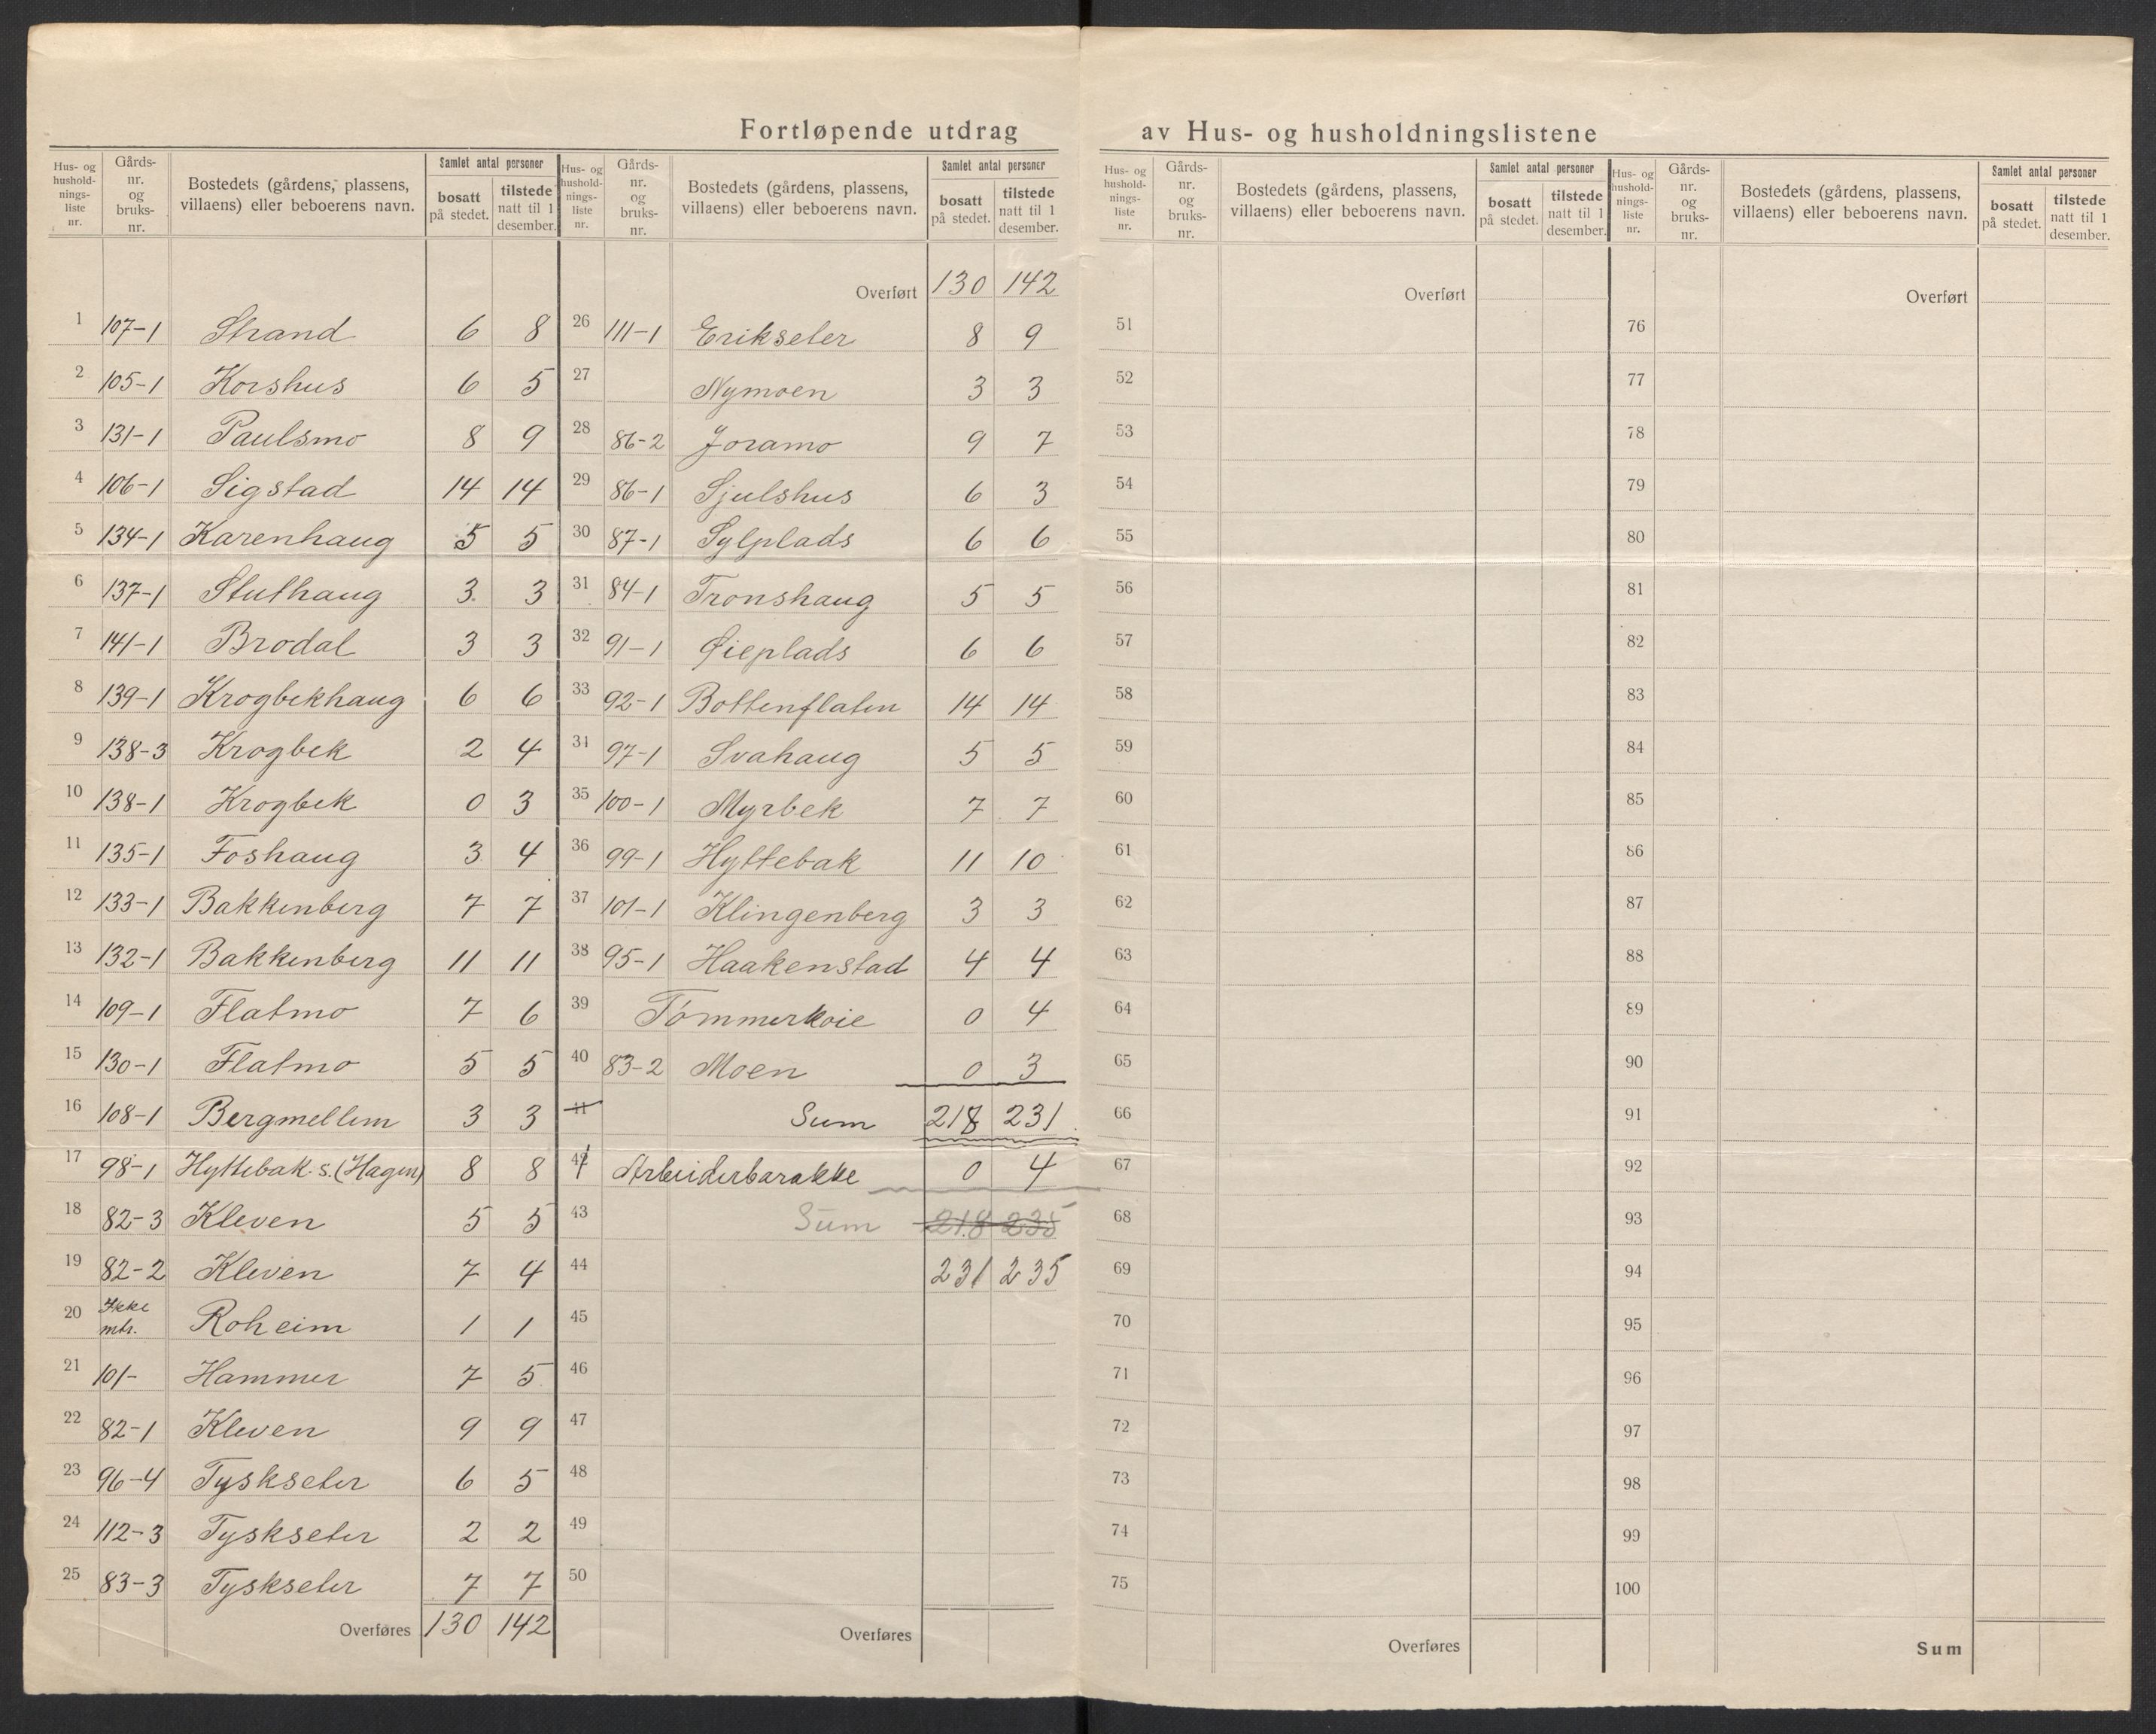 Fortløpende utdrag av Hus- og husholdningslistene
Hus- og husholdnings- liste nr. Gårds- nr. og bruks- nr. Bostedets (gårdens, plassens, villaens) eller beboerens navn. Samlet antal personer bosatt på stedet. tilstede natt til 1 desember.
1 107-1 Strand 6 8
2 105-1 Korshus 6 5
3 131-1 Paulsmo 8 9
4 106-1 Sigstad 14 14
5 134-1 Karenhaug 5 5
6 137-1 Stuthaug 3 3
7 141-1 Brodal 3 3
8 139-1 Krogbekhaug 6 6
9 138-3 Krogbek 2 4
10 138-1 Krogbek 0 3
11 135-1 Foshaug 3 4
12 133-1 Bakkenberg 7 7
13 132-1 Bakkenberg 11 11
14 109-1 Flatmo 7 6
15 130-1 Flatmo 5 5
16 108-1 Bergmellem 3 3
17 98-1 Hyttebak s. (Hagen) 8 8
18 82-3 Kleven 5 5
19 82-2 Kleven 7 4
20 Ikke mtr. Roheim 1 1
21 101- Hammer 7 5
22 82-1 Kleven 9 9
23 96-4 Tyskseter 6 5
24 112-3 Tyskseter 2 2
25 83-3 Tyskseter 7 7
Overføres 130 142
Hus- og husholdnings- liste nr. Gårds- nr. og bruks- nr. Bostedets (gårdens, plassens, villaens) eller beboerens navn. Samlet antal personer bosatt på stedet. tilstede natt til 1 desember.
Overført 130 142
26 111-1 Erikseter 8 9
27 Nymoen 3 3
28 86-2 Joramo 9 7
29 86-1 Sjulshus 6 3
30 87-1 Sylplads 6 6
31 84-1 Tronshaug 5 5
32 91-1 Øieplads 6 6
33 92-1 Bottenflaten 14 14
34 97-1 Svahaug 5 5
35 100-1 Myrbek 7 7
36 99-1 Hyttebak 11 10
37 101-1 Klingenberg 3 3
38 95-1 Haakenstad 4 4
39 Tömmerkoie 0 4
40 83-2 Moen 0 3
41 Sum 218 231
41 Arbeiderbarakke 0 4
43 Sum 218 235
44 231 235
45
46
47
48
49
50
Overføres
Hus- og husholdnings- liste nr. Gårds- nr. og bruks- nr. Bostedets (gårdens, plassens, villaens) eller beboerens navn. Samlet antal personer bosatt på stedet. tilstede natt til 1 desember.
Overført
51
52
53
54
55
56
57
58
59
60
61
62
63
64
65
66
67
68
69
70
71
72
73
74
75
Overføres
Hus- og husholdnings- liste nr. Gårds- nr. og bruks- nr. Bostedets (gårdens, plassens, villaens) eller beboerens navn. Samlet antal personer bosatt på stedet. tilstede natt til 1 desember.
Overført
76
77
78
79
80
81
82
83
84
85
86
87
88
89
90
91
92
93
94
95
96
97
98
99
100
Sum